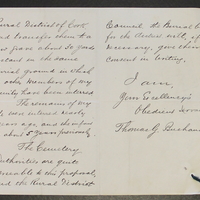 Rural District of Cook
and transfer them to a
new grave about 30 yards
distant in the same
burial ground in which
other members of my
family have been interred
The remains of my
were interred nearly
years ago, and the
about 5 years previously.
The Cemetery
Authorities are quite
agreeable to the proposal,
and the Rural District
Council the Burial
for the district will, if
necessary, give their
consent in writing.
I am,
Your Excellency's
Obedient
Thomas G. Buchanan